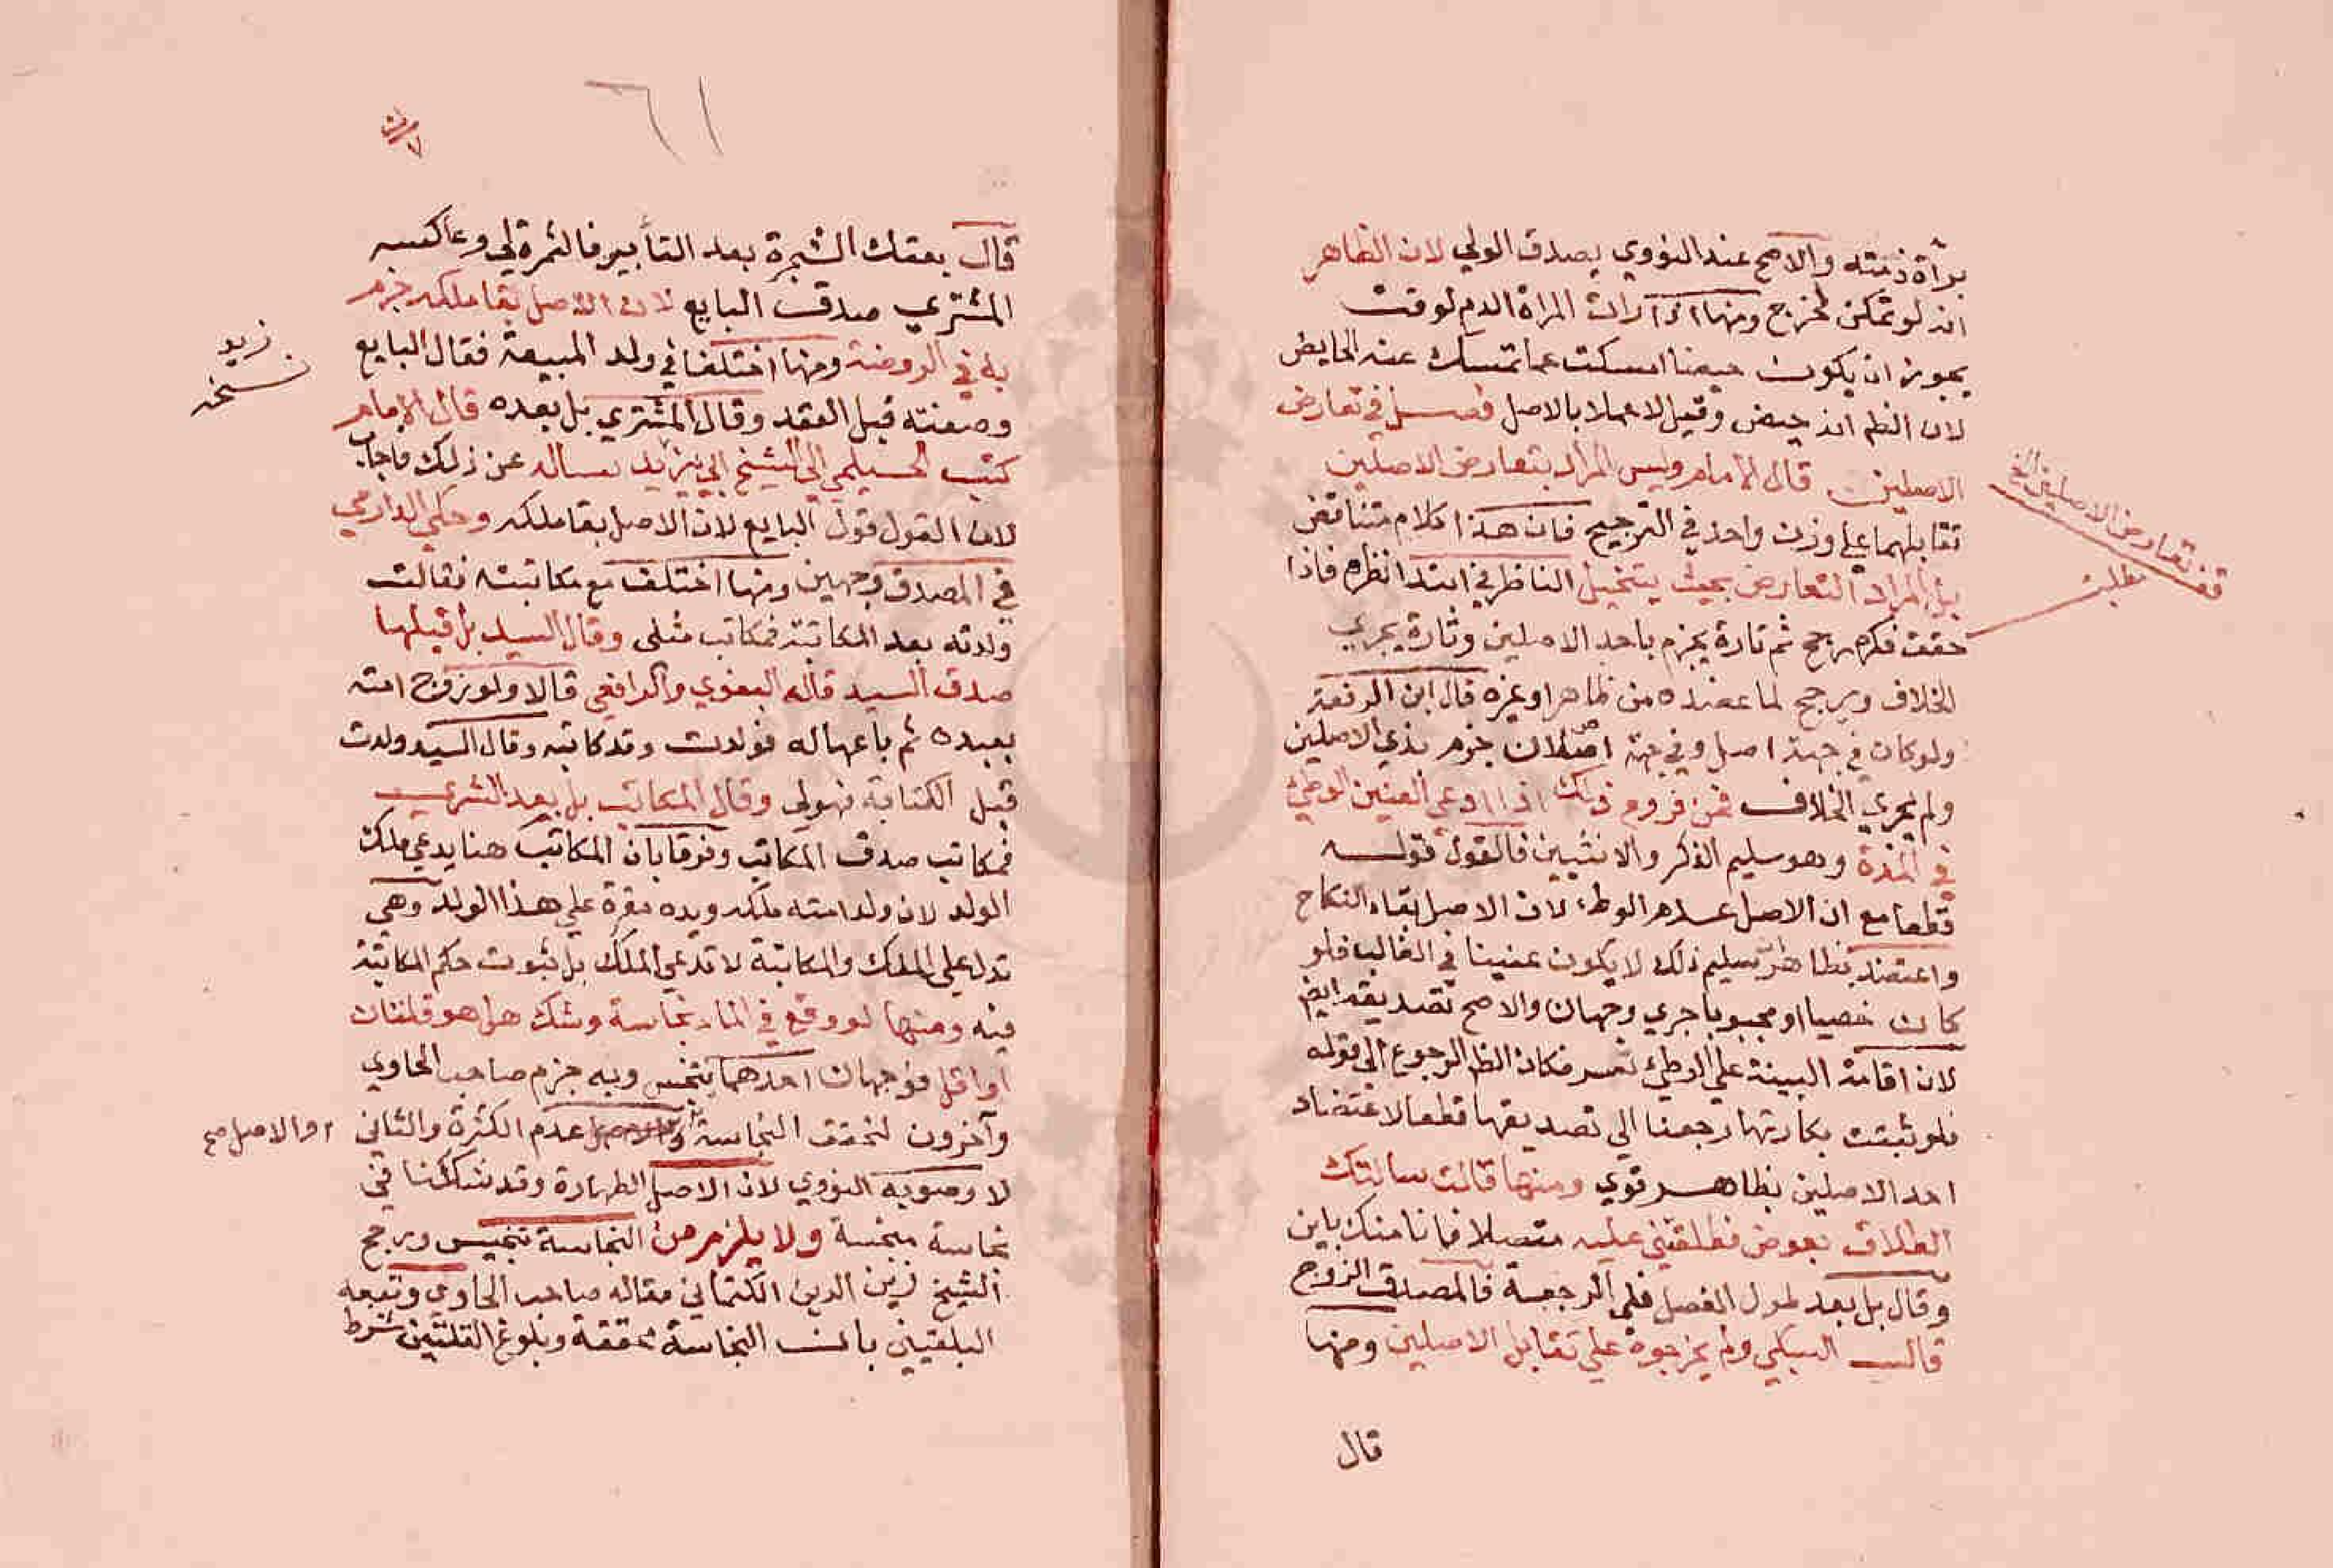 برأة ذمته والاصح عند النووي يصدق الولي لان الظاهر
انه لو تمكن لخرج ومنها اذا رات المراة الدم لوقت
يجوز ان يكون حيضا امسكت عما تمسك عنه الحايض
لان الظم انه حيض وقيل لا عملا بالاصل فصل في تعارض
الاصلين قال الامام وليس المراد بتعارض الاصلين
تقابلهما على وزن واحد في الترجيح فان هذا كلام متناقض
بل المراد التعارض بحيث يتخيل الناظر في ابتدا نظره فاذا
حقق فكره رجح ثم تارة يجزم باحد الاصلين وتارة يجري
الخلاف ويرجح لما عضده من ظاهر او غيره قال ابن الرفعة
ولو كان في جهة اصل وفي جهة اصلان جزم بذي الاصلين
ولم يجري الخلاف فمن فروع ذلك اذا ادعى العنين الوطئ
في المدة وهو سليم الذكر والانثيين فالقول قوله
قطعا مع ان الاصل عدم الوطء لان الاصل بقاء النكاح
واعتضد بظاهر سليم ذلك لا يكون عنينا في الغالب فلو
كان خصيا او مجبوبا جري وجهان والاصح تصديقه ايض
لان اقامة البينة على الوطئ تعسر فكان الظم الرجوع الى قوله
فلو ثبتت بكارتها رجعنا الي تصديقها قطعا لاعتضاد
احد الاصلين بظاهر قوي ومنها قالت سالتك
الطلاق بعوض فطلقتني عليه متصلا فانا منك باين
وقال بل بعد طول الفصل فلي الرجعة فالمصدق الزوج
قال السبكي ولم يخرجوه على تقابل الاصلين ومنها
قال
قف تعارض الاصلين الخ
مطلب
٦١
قال بعتك الشجرة بعد التأبير فالثمرة لي وعاكسه
المشتري صدق البايع لان الاصل بقا ملكه جزم
به في الروضة ومنها اختلفا في ولد المبيعة فقال البايع
وضعته قبل العقد وقال المشتري بل بعده قال الامام
كتب الحليمي الى الشيخ ابي يزيد يساله عن ذلك فاجاب
لان القول قول البايع لان الاصل بقا ملكه وحكى الدارمي
في المصدق وجهين ومنها اختلف مع مكاتبته فقالت
ولدته بعد المكاتبة فمكاتب مثلى وقال السيد بل قبلها
صدق السيد قاله البغوي والرافعي قالا ولو زوج امته
بعبده ثم باعها له فولدت وقد كاتبه وقال السيد ولدت
قبل الكتابة فهو لي وقال المكاتب بل بعد الشرى
فمكاتب صدق المكاتب وفرقا بان المكاتب هنا يدعي ملك
الولد لان ولد امته ملكه ويده مقرة على هذا الولد وهي
تدل على الملك والمكاتبة لا تدعي الملك بل ثبوت حكم المكاتبة
فيه ومنها لو وقع في الماء نجاسة وشك هل هو قلتان
او اقل فوجهان احدهما يتنجس وبه جزم صاحب الحاوي
وآخرون لتحقق النجاسة عدم الكثرة والثاني
لا وصوبه النووي لان الاصل الطهارة وقد شككنا في
نجاسة منجسة ولا يلزم من النجاسة تنجيس ورجح
الشيخ زين الدين الكتماني مقاله صاحب الحاوي وتبعه
البلقيني بان النجاسة محققة وبلوغ القلتين شرط
زيد
نسخه
والاصل صح